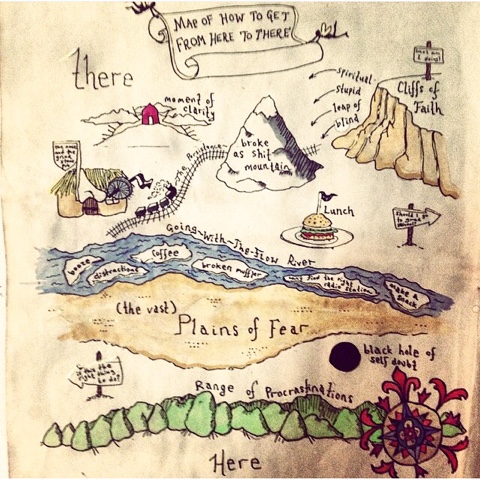 MAP OF HOW TO GET
FROM HERE TO THERE
there
what am
I doing?
spiritual
stupid
leap of
blind
Cliffs of
Faith
moment of
clarity
broke
as shit
mountain
Persistence
Lunch
Should I go
to
Going-With-The-Flow River
booze
distractions
coffee
broken muffler
can't find the right
radio station
make a
snack
(the vast)
Plains of Fear
black hole of
self doubt
is this the
right thing
to do?
Range of Procrastinations
Here